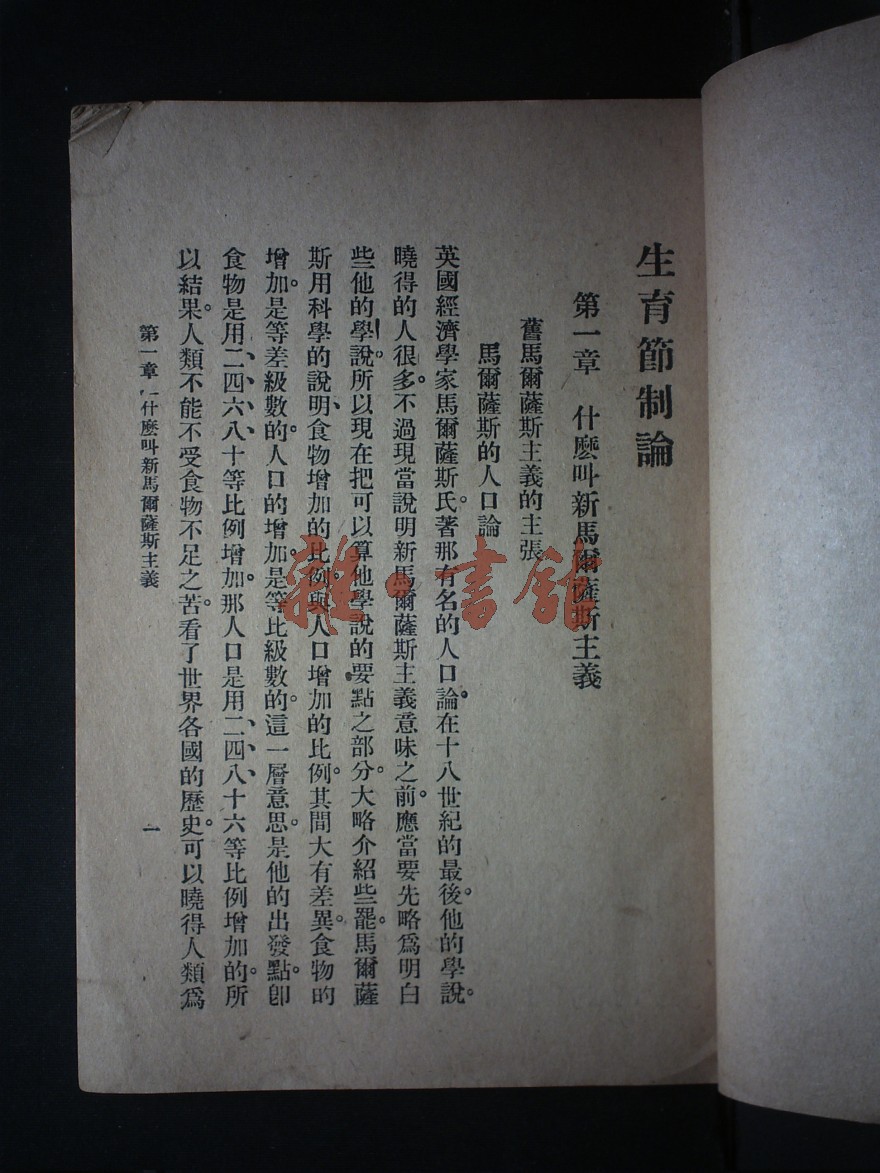 生育節制論
第一章 什麽叫新馬爾薩斯主義
舊馬爾薩斯主義的主張
馬爾薩斯的人口論
英國經濟學家馬爾薩斯氏。著那有名的人口論。在十八世紀的最後。他的學說。
曉得的人很多。不過現當說明新馬爾薩斯主義意味之前。應當要先略爲明白
些他的學說。所以現在把可以算他學說的要點之部分。大略介紹些罷。馬爾薩
斯用科學的說明、食物增加的比例。與人口增加的比例。其間大有差異。食物的
增加。是等差級數的。人口的增加。是等比級數的。這一層意思。是他的出發點。卽
食物是用二、四、六、八、十等比例增加。那人口是用二、四、八、十六等比例增加的。所
以結果。人類不能不受食物不足之苦。看了世界各國的歷史。可以曉得人類爲
第一章 什麽叫新馬爾薩斯主義 一
雜·書館